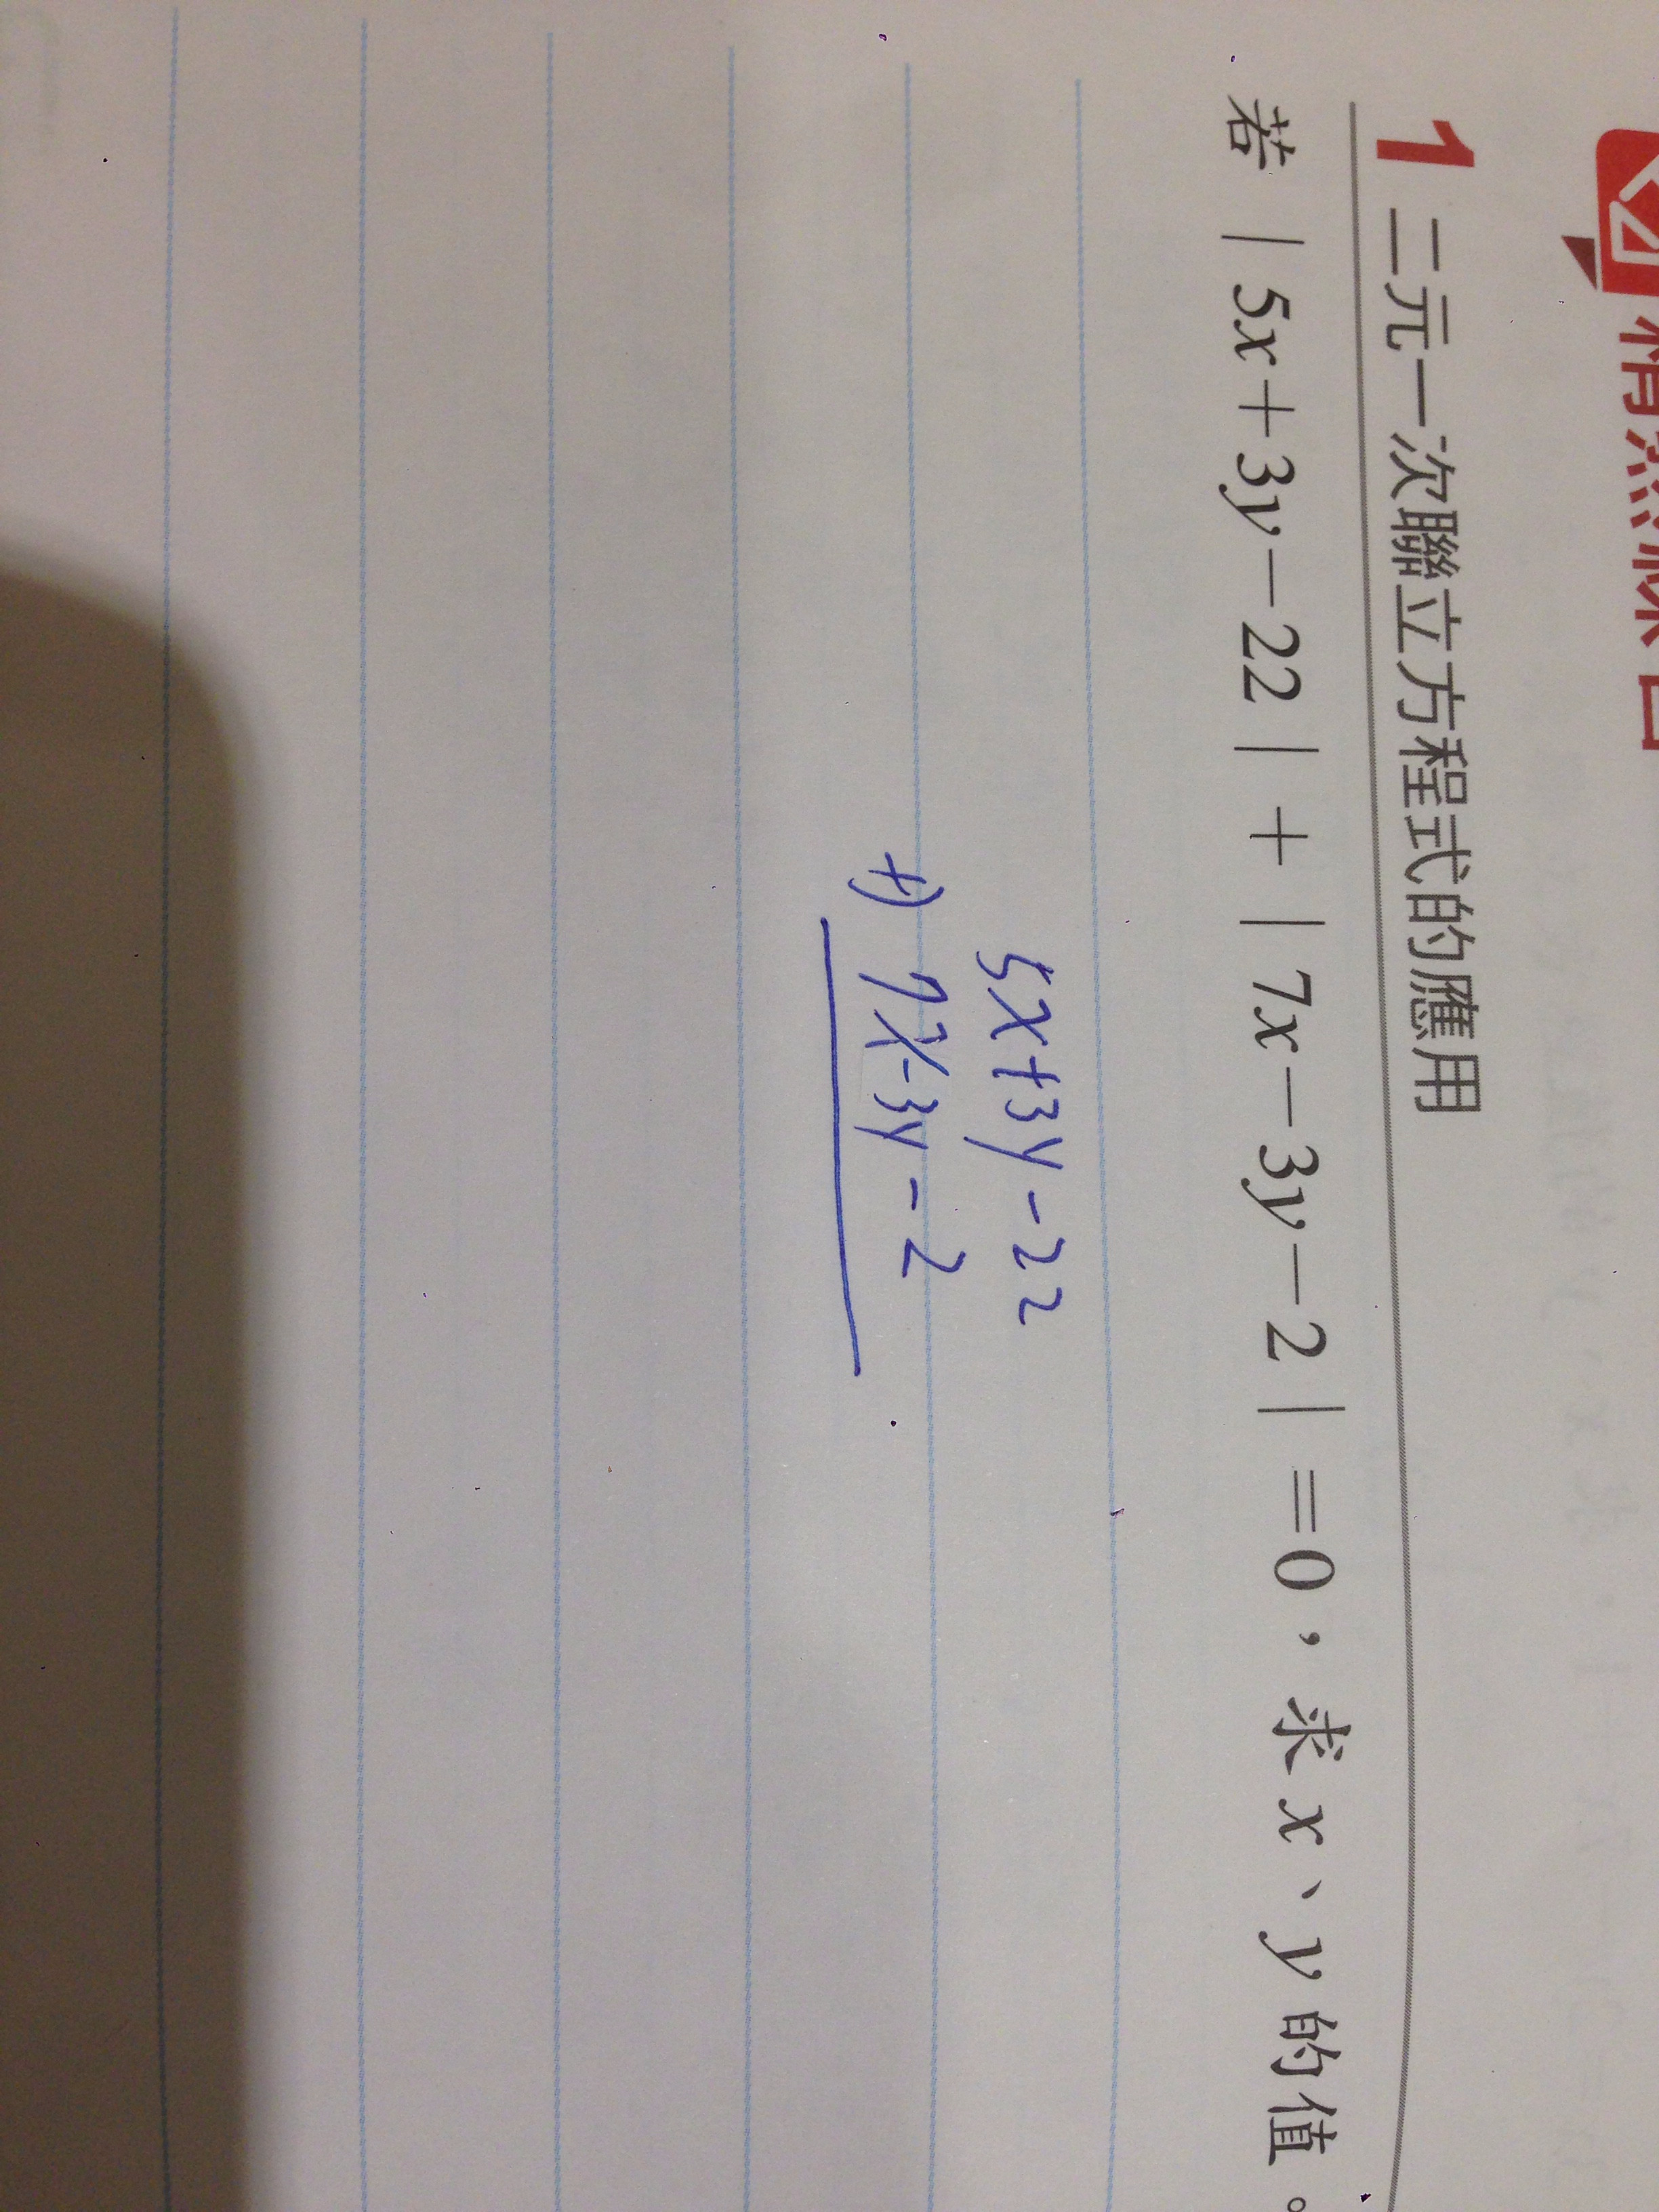 精熟練習
1 二元一次聯立方程式的應用
若 | 5x+3y-22 | + | 7x-3y-2 | =0，求 x、y 的值。
5x+3y-22
+) 7x-3y-2